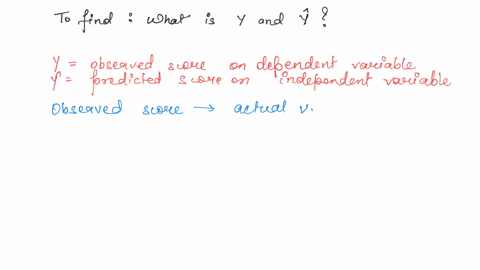 To find : What is Y and Ŷ ?
Y = observed score on dependent variable
Ŷ = predicted score on independent variable
Observed score → actual v.